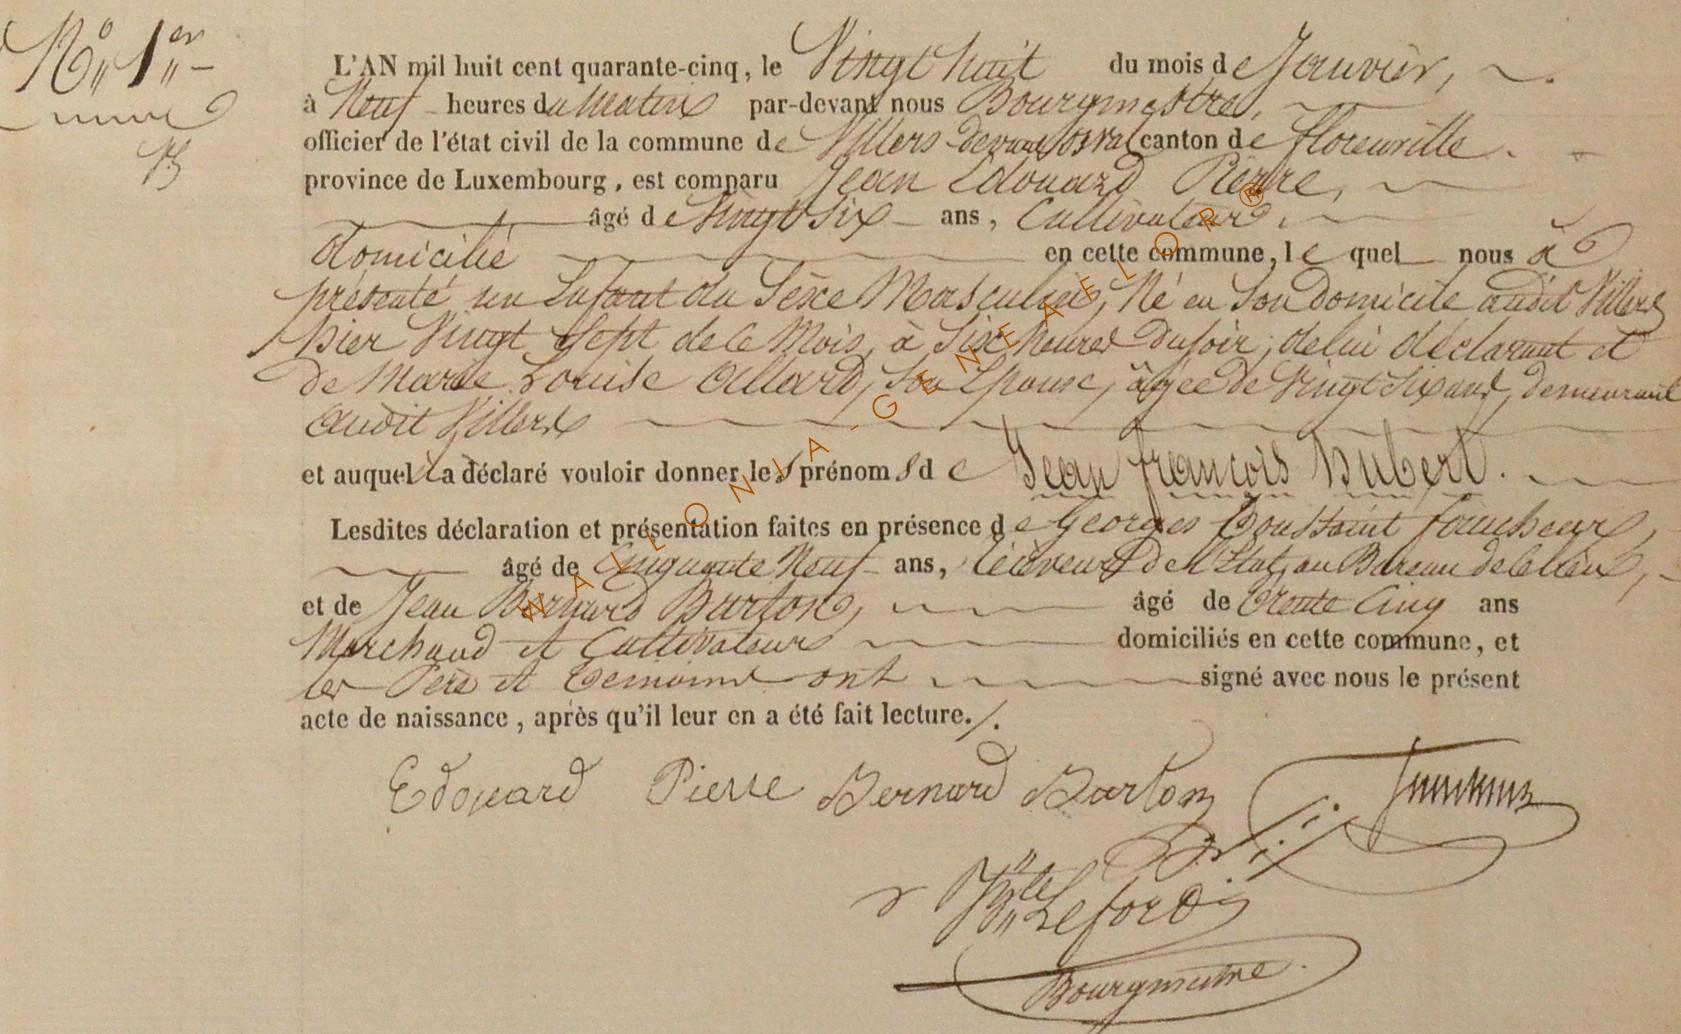 N° 1er
L'AN mil huit cent quarante-cinq, le Vingt huit du mois de Janvier,
à Neuf heures du Matin par-devant nous Bourgmestre,
officier de l'état civil de la commune de Villers devant orval canton de florenville
province de Luxembourg, est comparu Jean Edouard Pierre,
âgé de Vingt Six ans, Cultivateur,
domicilié en cette commune, le quel nous à
présenté un Enfant du Sexe Masculin, Né en Son domicile audit Villers
hier Vingt Sept de ce Mois, à Six heures du soir, de lui déclarant et
de Marie Louise Allard, Son Epouse, âgée de Vingt Six ans, demeurant
audit Villers
et auquel il a déclaré vouloir donner les prénoms de Jean françois Hubert.
Lesdites déclaration et présentation faites en présence de Georges Toussaint
âgé de Cinquante Neuf ans, Récéveur de l'Etat, au Bureau de ce lieu,
et de Jean Bernard Burton, âgé de Trente Cinq ans
Marchand et Cultivateur domiciliés en cette commune, et
les Père et Témoins ont signé avec nous le présent
acte de naissance, après qu'il leur en a été fait lecture./.
Edouard Pierre Bernard Burton
Lefort
Bourgmestre
WALLONIA-GENEALOR®